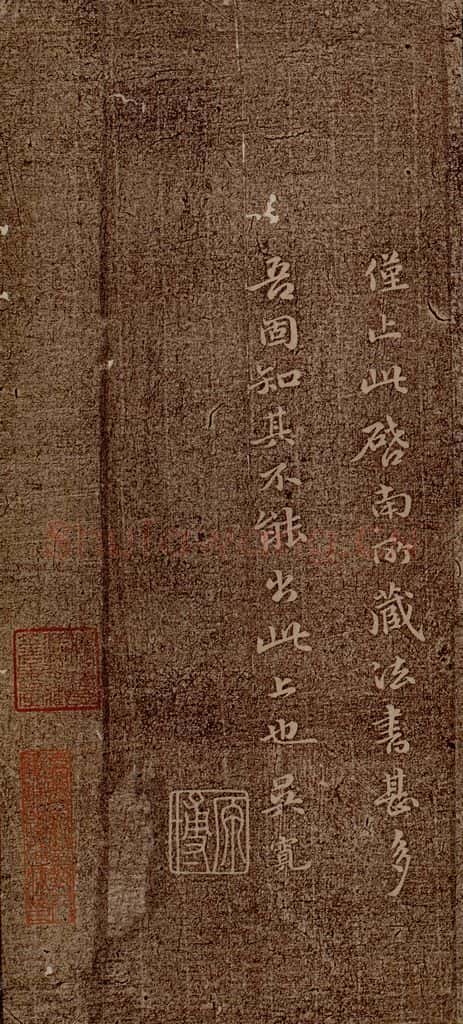 僅止此啓南所蔵法書甚多
吾固知其不能出此上也吳寬
原博